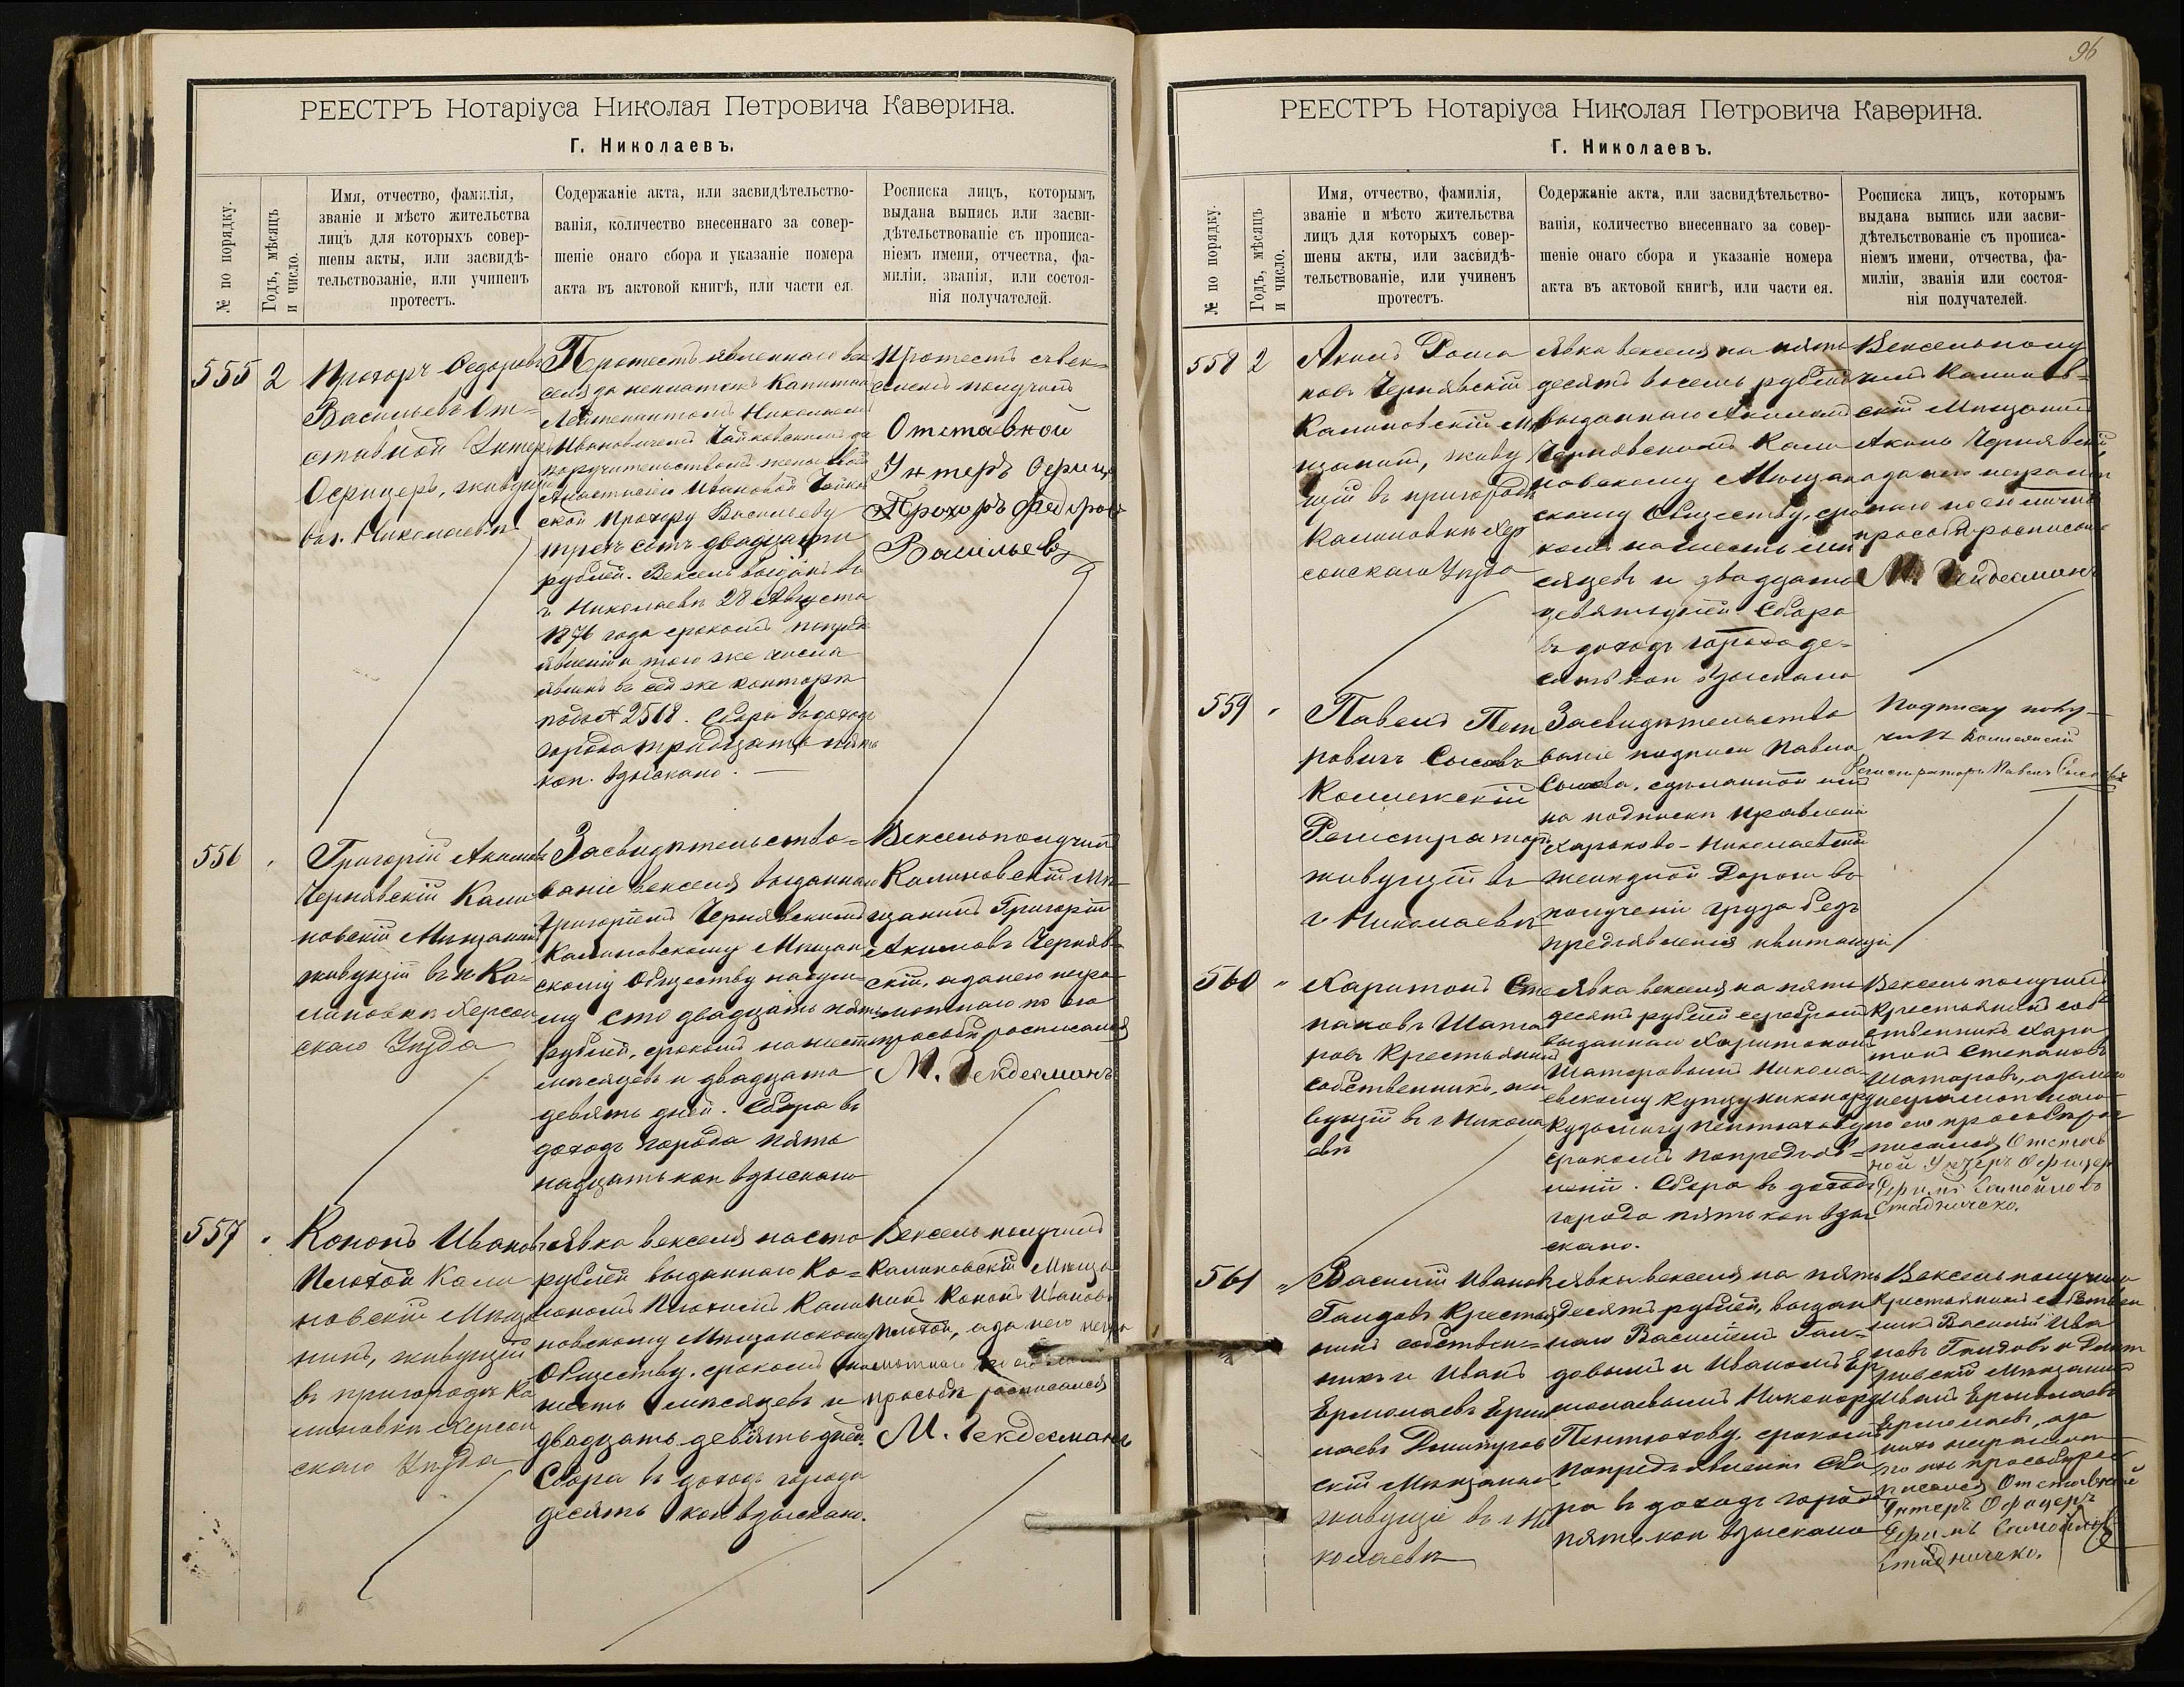 РЕЕСТРЪ Нотаріуса Николая Петровича Каверина.
Г. Николаевъ.
№ по порядку.
Годъ, мѣсяцъ
и число.
Имя, отчество, фамилія,
званіе и мѣсто жительства
лицъ для которыхъ совер-
шены акты, или засвидѣ-
тельствованіе, или учиненъ
протестъ.
Содержаніе акта, или засвидѣтельство-
ванія, количество внесеннаго за совер-
шеніе онаго сбора и указаніе номера
акта въ актовой книгѣ, или части ея.
Росписка лицъ, которымъ
выдана выпись или засви-
дѣтельствованіе съ прописа-
ніемъ имени, отчества, фа-
миліи, званія, или состоя-
нія получателей.
555
2
Прохоръ Федоровъ
Васильевъ От=
ставной Унтеръ
Офицеръ, живущій
въ г. Николаевѣ
Протестъ явленнаго век
селя за неплатежъ Капитан
Лейтенантомъ Николаемъ
Ивановичемъ Чайковскимъ за
поручительствомъ жены своей
Анастасіею Ивановой Чайков
ской Прохору Васильеву
трехъ сотъ двадцати
рублей. Вексель выданъ въ
г. Николаевѣ 28 Августа
1876 года срокомъ по предъ
явленіи и того же числа
явленъ въ сей же конторѣ
подъ № 2518. Сбора въ доходъ
города тридцать пять
коп. взыскано.
Протестъ съ век=
селемъ получилъ
Отставной
Унтеръ Офице
Прохоръ Федоровъ
Васильевъ
556
Григорій Акимовъ
Чернявскій Кали
новскій Мѣщанинъ
живущій въ п Ка=
линовкѣ Херсон
скаго Уѣзда
Засвидѣтельство=
ваніе векселя выданнаго
Григоріемъ Чернявскимъ
Калиновскому Мѣщан
скому Обществу на сум=
му сто двадцать пять
рублей, срокомъ на шесть
мѣсяцевъ и двадцать
девять дней. Сбора въ
доходъ города пят
надцать коп взыскано
Вексель получилъ
Калиновскій Мѣ
щанинъ Григорій
Акимовъ Черняв=
скій, а за него негра
мотнаго по его
просьбѣ росписался
М. Гекдесманъ
557
Кононъ Ивановъ
Плохой Кали
новскій Мѣща
нинъ, живущій
въ пригородѣ Ка
линовкѣ Херсон
скаго Уѣзда
Явка векселя на сто
рублей выданнаго Ко=
нономъ Плохимъ Кали
новскому Мѣщанскому
Обществу, срокомъ на
шесть мѣсяцевъ и
двадцать девять дней.
Сбора въ доходъ города
десять коп взыскано.
Вексель получилъ
Калиновскій Мѣща
нинъ Кононъ Ивановъ
Плохой, а за него негра
мотнаго по его
просьбѣ росписался
М. Гекдесманъ
96
РЕЕСТРЪ Нотаріуса Николая Петровича Каверина.
Г. Николаевъ.
№ по порядку.
Годъ, мѣсяцъ
и число.
Имя, отчество, фамилія,
званіе и мѣсто жительства
лицъ для которыхъ совер-
шены акты, или засвидѣ-
тельствованіе, или учиненъ
протестъ.
Содержаніе акта, или засвидѣтельство-
ванія, количество внесеннаго за совер-
шеніе онаго сбора и указаніе номера
акта въ актовой книгѣ, или части ея.
Росписка лицъ, которымъ
выдана выпись или засви-
дѣтельствованіе съ прописа-
ніемъ имени, отчества, фа-
миліи, званія или состоя-
нія получателей.
558
2
Акимъ Рома
новъ Чернявскій
Калиновскій Мѣ
щанинъ, живу
щій въ пригородѣ
Калиновкѣ Хер
сонскаго Уѣзда
Явка векселя на пять
десятъ восемь рублей
выданнаго Акимомъ
Чернявскимъ Кали
новскому Мѣщан
скому Обществу, сро
комъ на шесть мѣ
сяцевъ и двадцать
девять дней. Сбора
въ доходъ города де=
сять коп взыскано
Вексель полу
чилъ Калинов=
скій Мѣщанинъ
Акимъ Чернявскій
а за него неграмот
наго по его личной
просьбѣ росписался
М. Гекдесманъ
559
Павелъ Пет
ровичъ Сысоевъ
Коллежскій
Регистраторъ
живущій въ
г Николаевѣ
Засвидѣтельство
ваніе подписи Павла
Сысоева, сдѣланной имъ
на подпискѣ Правленію
Харьково-Николаевской
желѣзной Дороги въ
полученіи груза безъ
предъявленія квитанціи
Подписку полу-
чилъ Коллежскій
Регистраторъ Павелъ Сысоевъ
560
Харитонъ Сте
пановъ Шата
ровъ Крестьянинъ
собственникъ, жи
вущій въ г Никола
евѣ
Явка векселя на пять
десятъ рублей серебромъ
выданнаго Харитономъ
Шатаровымъ Никола
евскому Купцу Никанору
Кузьмичу Пентюхову
срокомъ по предъяв=
леніи. Сбора въ доходъ
города пять коп взы
скано.
Вексель получилъ
Крестьянинъ соб
ственникъ Хари
тонъ Степановъ
Шатаровъ, а за него
неграмотнаго
по его просьбѣ рос
писался Отстав
ной Унтеръ Офицеръ
Самойловъ
Стадниченко.
561
Василій Ивановъ
Гайдовъ Крестья
нинъ собствен=
никъ и Иванъ
Ермолаевъ Ермо
лаевъ Дмитров
скій Мѣщанинъ
живущіе въ г Ни
колаевѣ
Явка векселя на пять
десятъ рублей, выдан
наго Василіемъ Гай=
довымъ и Иваномъ Ер
молаевымъ Никанору
Пентюхову, срокомъ
по предъявленіи Сбо
ра въ доходъ города
пять коп взыскано
Вексель получили
Крестьянинъ собствен
никъ Василій Ива
новъ Гайдовъ и Дмит
ровскій Мѣщанинъ
Иванъ Ермолаевъ
Ермолаевъ, а за
нихъ неграмот
по ихъ просьбѣ рос
писался Отставной
Унтеръ Офицеръ
Самойловъ
Стадниченко.